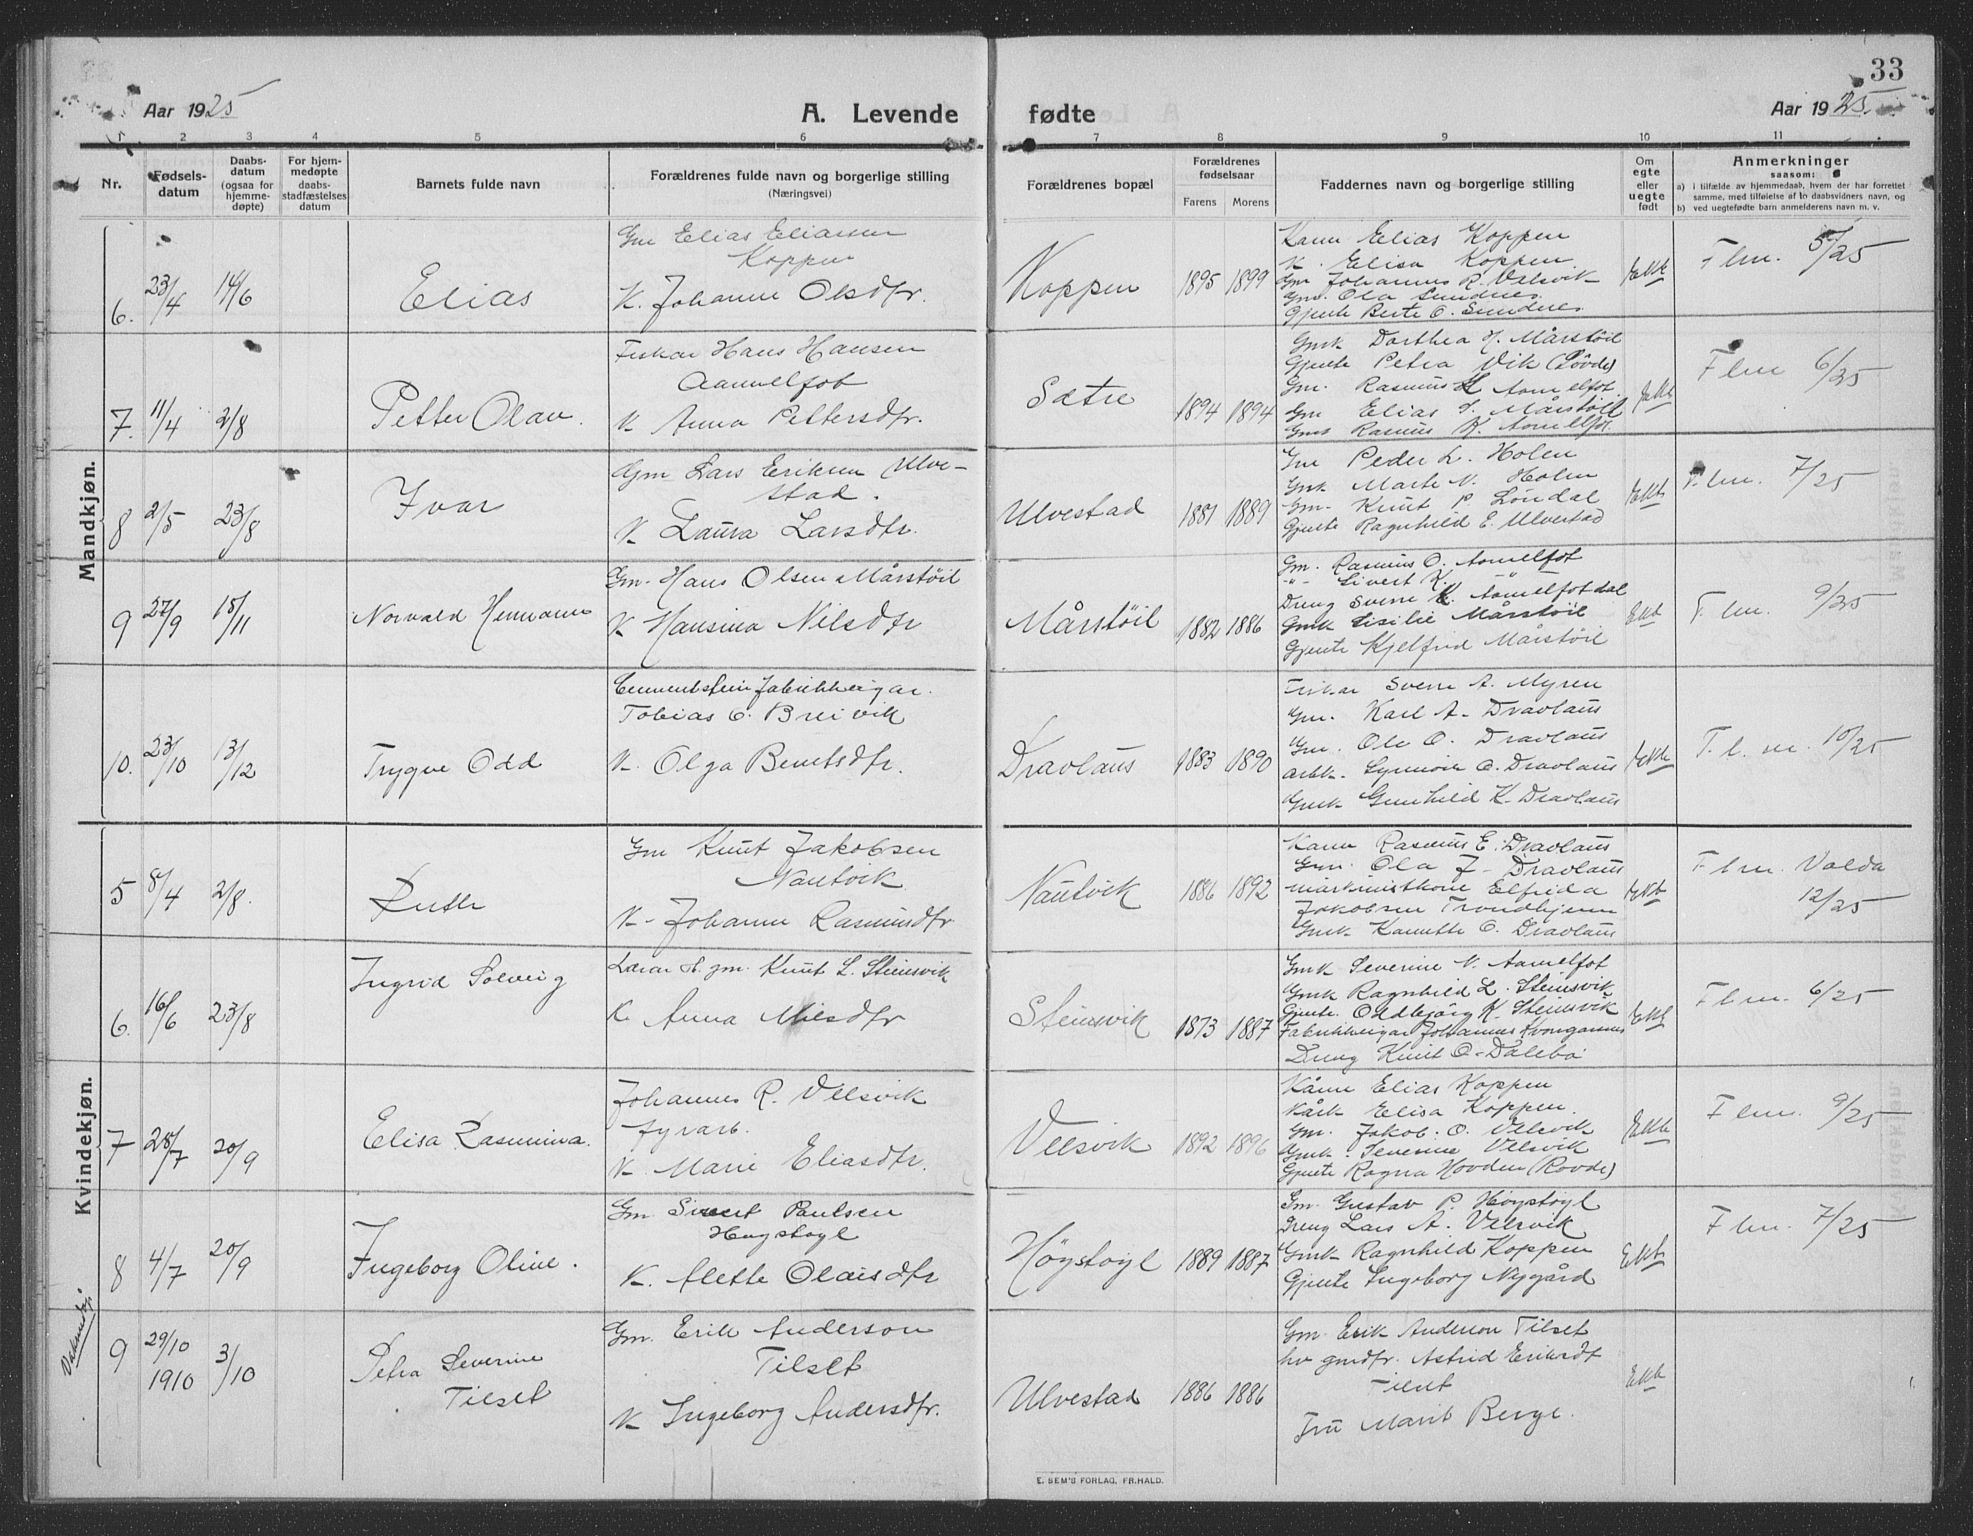 33
Aar 1925
A. Levende
fødte
Aar 1925.
1 2 3 4 5 6 7 8 9 10 11
Nr.
Fødsels-
datum
Daabs-
datum
(ogsaa for
hjemme-
døpte)
For hjem-
medøpte
daabs-
stadfæstelses
datum
Barnets fulde navn
Forældrenes fulde navn og borgerlige stilling
(Næringsvei)
Forældrenes bopæl
Forældrenes
fødselsaar
Farens Morens
Faddernes navn og borgerlige stilling
Om
egte
eller
uegte
født
Anmerkninger
saasom:
a) i tilfælde av hjemmedaab, hvem der har forrettet
samme, med tilføielse af to daabsvidners navn, og
b) ved uegtefødte barn anmelderens navn m. v.
Mandkjøn.
6. 23/4 14/6
Elias
Gm Elias Eliassen
Koppen
K. Johanne Olsdtr.
Koppen
1895 1899
Kann Elias Koppen
K. Elisa Koppen
Gm Johannes R. Velsvik
Gm. Ola Sundnes
Gjente Berte O. Sundnes
Ekt
F lm. 5/25
7. 11/4 2/8
Petter Olav.
Fiskar Hans Hansen
Aamelfot
K Anna Pettersdtr.
Sætre
1894 1894
Gmk Dorthea H. Mårstøil
Gjente Petra Vik (Søvde)
Gm. Rasmus K Aamelfot
Gm Elias S. Mårstøil
Gmk Rasmus K. Aamelfot.
Ekt
F lm 6/25
8 2/5 23/8
Ivar
Gm Lars Eriksen Ulve-
stad.
K Laura Larsdtr.
Ulvestad
1881 1889
Gm Peder L. Holen
Gmk Marte N. Holen
Gm. Knut P. Løndal
Gjente Ragnhild E. Ulvestad
Ekt
F lm. 7/25
9 27/9 15/11
Norvald Hermann
Gm. Hans Olsen Mårstøil
K Hansina Nilsdtr
Mårstøil
1882 1886
Gm. Rasmus O. Aamelfot
-"- Sivert K.
Dreng Sverre K. Aamelfotdal
Gmk Sisilie Mårstøil
Gjente Kjelfrid Mårstøil
Ekt
F lm. 9/25
10. 23/10 13/12
Trygve Odd
Cementsteinfabrikkeigar.
Tobias O. Breivik
K. Olga Berntsdtr.
Dravlaus
1883 1890
Fiskar Sverre A. Myren
Gm. Karl A. Dravlaus
Gm. Ole O. Dravlaus
Arbk. Synnøve O. Dravlaus
Gmk Gunhild K. Dravlaus
Ekt
F. l. m. 10/25
Kvindekjøn.
5 8/4 2/8.
Ruth
Gm Knut Jakobsen
Nautvik
K. Johanne Rasmusdtr
Nautvik
1886 1892
Kann Rasmus E. Dravlaus
Gm. Ola J. Dravlaus
Maskinistkone Elfrida
Jakobsen Trondhjem
Gmk Kanutte O. Dravlaus
Ekt
F lm. Volda
12/25
6. 16/6 23/8
Ingrid Solveig
Lærar og gm. Knut L. Steinsvik
K Anna Nilsdtr
Steinsvik
1873 1887
Gmk Severine N. Aamelfot
Gmk Ragnhild L. Steinsvik
Gjente. Oldbjørg K. Steinsvik
Fabrikkeigar Johannes Kvangarsnes
Dreng Knut O. Dalebø
Ekt
F lm. 6/25
7 28/7 20/9
Elisa Rasmina.
Johannes R. Velsvik
fyrarb.
K. Marie Eliasdtr.
Velsvik
1892 1896
Kånn Elias Koppen
Kårk Elisa Koppen.
Gm. Jakob. O. Velsvik
Gmk. Severine Velsvik
Gjente Ragna Hovden (Rovde)
Ekt
F lm. 9/25
8 4/7 20/9
Ingeborg Oline.
Gm Sivert Paulsen
Høystøyl
K. Alette Olaisdtr
Høystøyl
1889 1887
Gm. Gustav P. Høystøyl
Dreng Lars A. Velsvik
Gmk Ragnhild Koppen
Gjente Ingeborg Nygård
Ekt
F lm. 7/25
9 29/10 1910 3/10
Petra Severine
Tilset
Gm. Erik Anderson
Tilset
K Ingeborg Andersdtr.
Ulvestad
1886 1886
Gm. Erik Anderson Tilset
hv gmdtr. Astrid Eriksdt
Tilset
Fru Marit Berge.
Ekt
E. SEM'S FORLAG, FR.HALD.